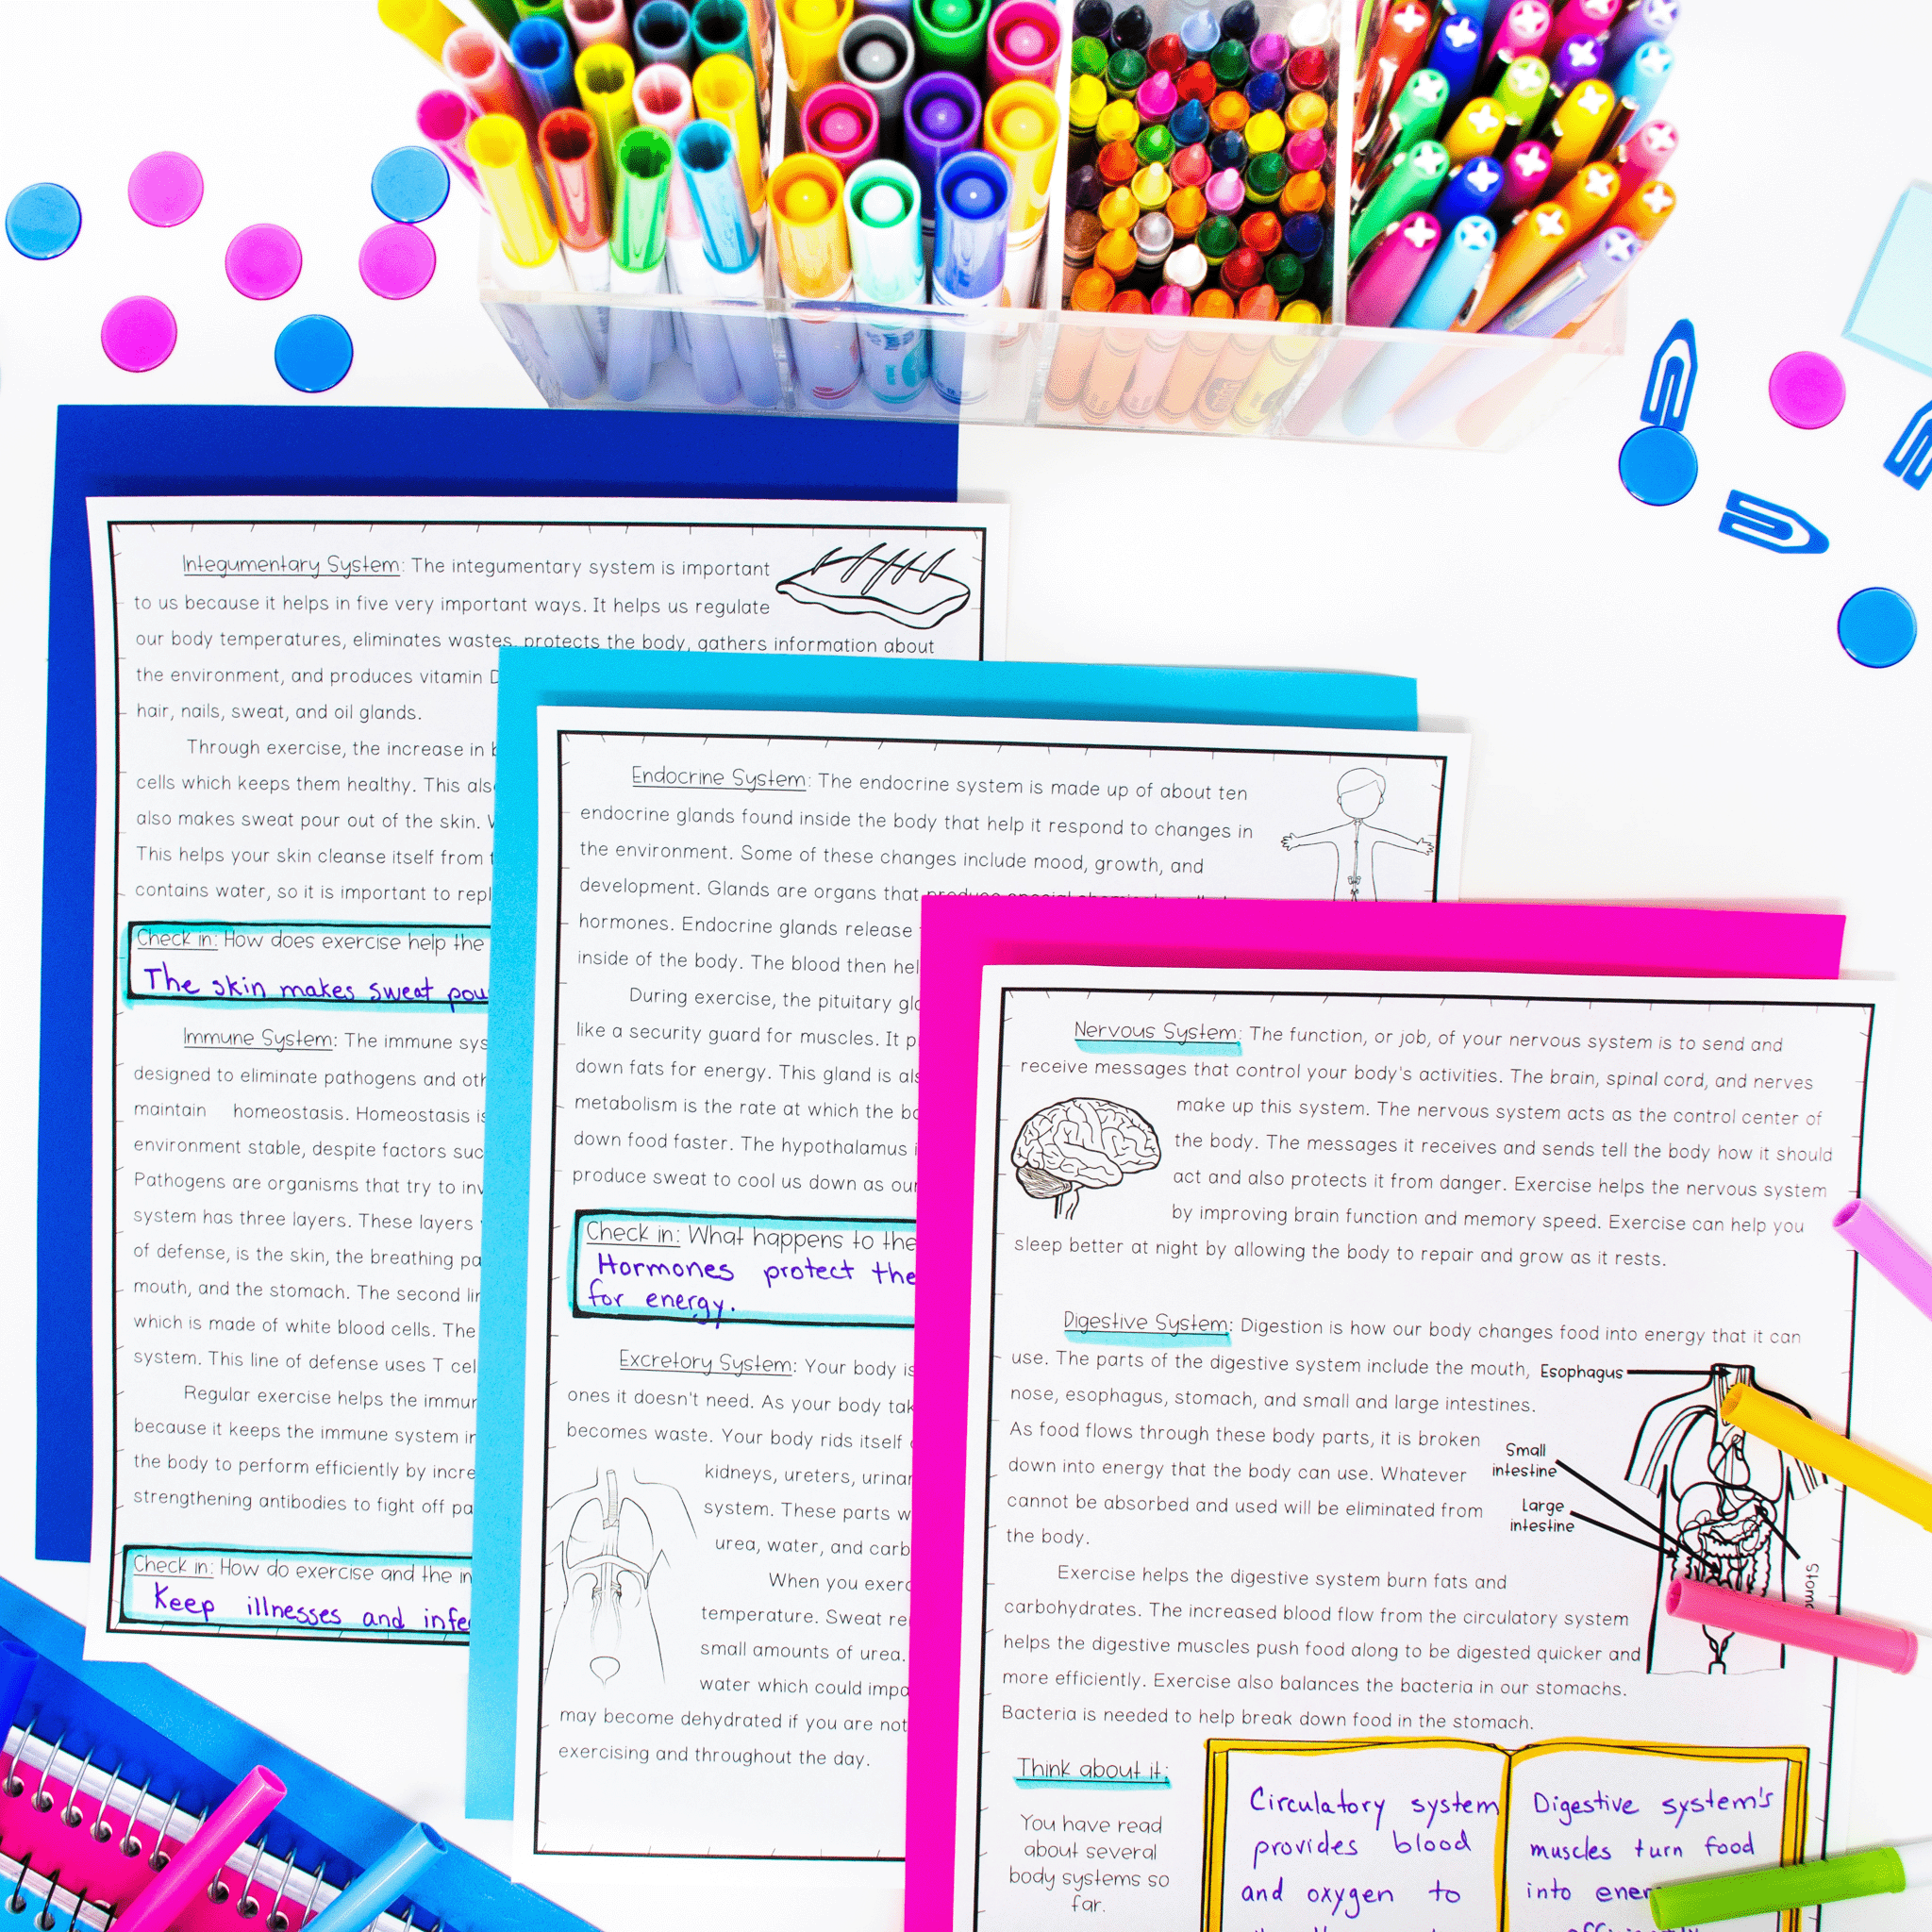 Integumentary System: The integumentary system is important
to us because it helps in five very important ways. It helps us regulate
our body temperatures, eliminates wastes, protects the body, gathers information about
the environment, and produces vitamin D
hair, nails, sweat, and oil glands.
Through exercise, the increase in
cells which keeps them healthy. This
also makes sweat pour out of the skin.
This helps your skin cleanse itself from
contains water, so it is important to
Check in: How does exercise help the
The skin makes sweat
Immune System: The immune
designed to eliminate pathogens and
maintain homeostasis. Homeostasis
environment stable, despite factors
Pathogens are organisms that try to
system has three layers. These layers
of defense, is the skin, the breathing
mouth, and the stomach. The second
which is made of white blood cells. The
system. This line of defense uses T
Regular exercise helps the
because it keeps the immune system
the body to perform efficiently by
strengthening antibodies to fight off
Check in: How do exercise and the
Keep illnesses and
Endocrine System: The endocrine system is made up of about ten
endocrine glands found inside the body that help it respond to changes in
the environment. Some of these changes include mood, growth, and
development. Glands are organs that
hormones. Endocrine glands release
inside of the body. The blood then
During exercise, the pituitary
like a security guard for muscles. It
down fats for energy. This gland is
metabolism is the rate at which the
down food faster. The hypothalamus
produce sweat to cool us down as our
Check in: What happens to the
Hormones protect the
for energy.
Excretory System: Your body is
ones it doesn't need. As your body
becomes waste. Your body rids itself
kidneys, ureters,
system. These parts
urea, water, and
When you
temperature. Sweat
small amounts of urea.
water which could
may become dehydrated if you are not
exercising and throughout the day.
Nervous System: The function, or job, of your nervous system is to send and
receive messages that control your body's activities. The brain, spinal cord, and nerves
make up this system. The nervous system acts as the control center of
the body. The messages it receives and sends tell the body how it should
act and also protects it from danger. Exercise helps the nervous system
by improving brain function and memory speed. Exercise can help you
sleep better at night by allowing the body to repair and grow as it rests.
Digestive System: Digestion is how our body changes food into energy that it can
use. The parts of the digestive system include the mouth,
nose, esophagus, stomach, and small and large intestines.
As food flows through these body parts, it is broken
down into energy that the body can use. Whatever
cannot be absorbed and used will be eliminated from
the body.
Esophagus
Small
intestine
Large
intestine
Exercise helps the digestive system burn fats and
carbohydrates. The increased blood flow from the circulatory system
helps the digestive muscles push food along to be digested quicker and
more efficiently. Exercise also balances the bacteria in our stomachs.
Bacteria is needed to help break down food in the stomach.
Think about it:
You have read
about several
body systems so
far.
Circulatory system
provides blood
and oxygen to
Digestive system's
muscles turn food
into